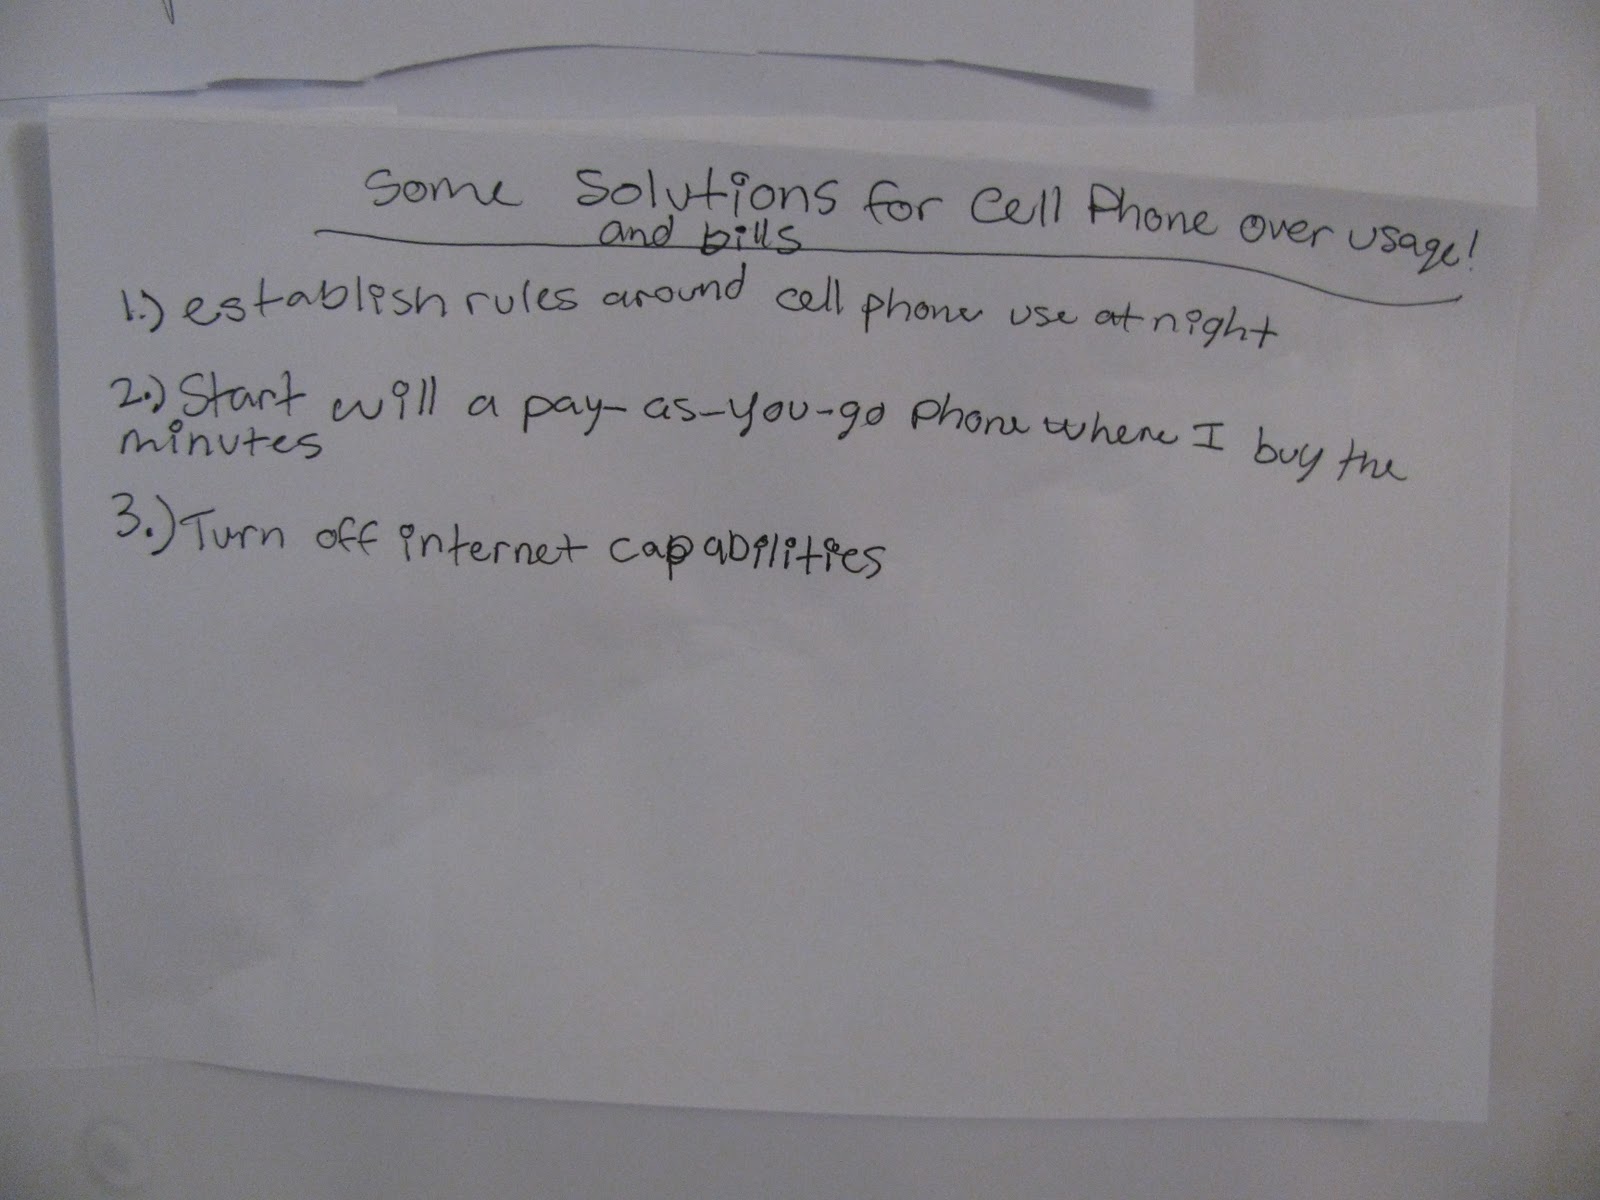 Some Solutions for Cell Phone over usage!
and bills
1.) establish rules around cell phone use at night
2.) Start will a pay-as-you-go phone where I buy the
minutes
3.) Turn off internet capabilities